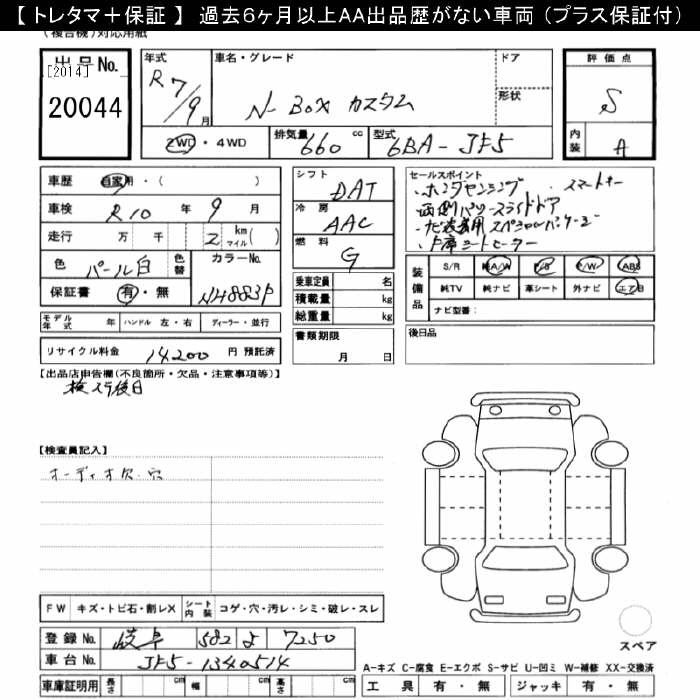 【 トレタマ＋保証 】 過去６ヶ月以上ＡＡ出品歴がない車両（プラス保証付）
(複合機)対応用紙
出品No.
[2014]
20044
年式
R7/9月
車名・グレード
N-BOX カスタム
ドア
形状
評価点
S
内装
A
2WD・4WD
排気量
660 cc
型式
6BA-JF5
車歴
自家用・( )
車検
R10年 9月
走行
万 千 2 km マイル( )
色
パール白
色替
カラーNo.
NH883P
保証書
有・無
シフト
DAT
冷房
AAC
燃料
G
乗車定員 名
積載量 kg
総重量 kg
書類期限
月 日
セールスポイント
・ホンダセンシング ・スマートキー
・両側パワースライドドア
・ナビ装着用スペシャルパッケージ
・前席シートヒーター
装備品
S/R
純A/W
P/S
P/W
ABS
純TV
純ナビ
革シート
外ナビ
エアB
ナビ型番:
モデル年式 年
ハンドル 左・右
ディーラー・並行
リサイクル料金 14,200 円 預託済
後日品
【出品店申告欄(不良箇所・欠品・注意事項等)】
検ステ後日
【検査員記入】
オーディオ欠・穴
FW
キズ・トビ石・割レX
シート内装
コゲ・穴・汚レ・シミ・破レ・スレ
登録No. 岐阜 582 よ 7250
車台No. JF5-1340514
車庫証明用
長さ cm
幅 cm
高さ cm
スペア
A-キズ C-腐食 E-エクボ S-サビ U-凹ミ W-補修 XX-交換済
工具 有・無
ジャッキ 有・無